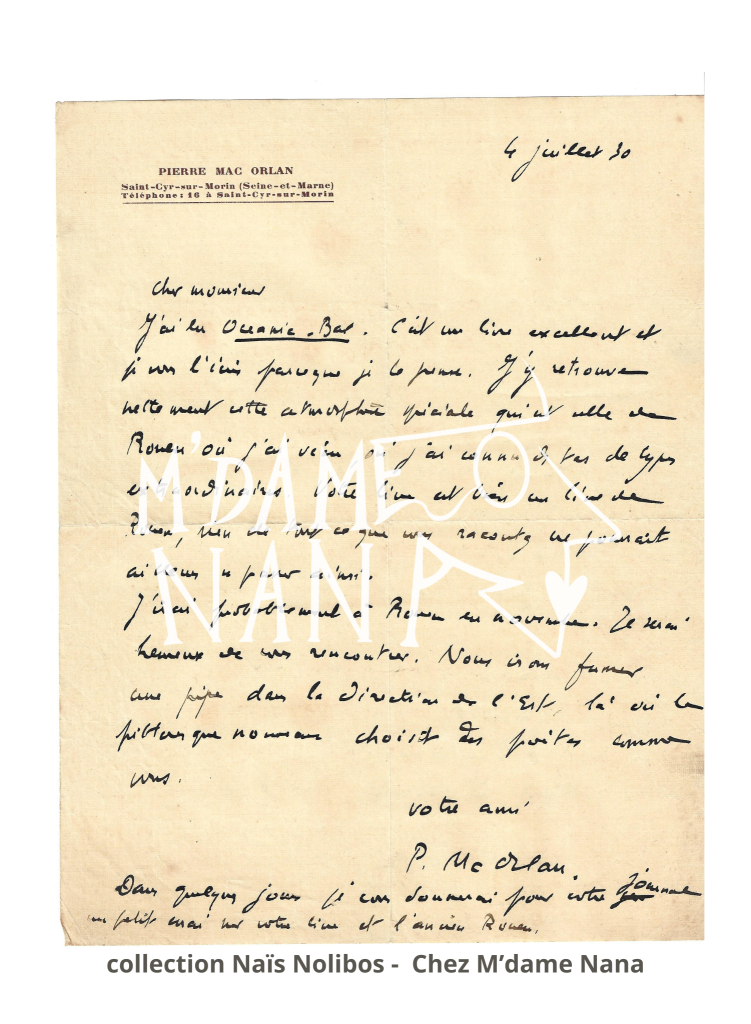 4 juillet 30
PIERRE MAC ORLAN
Saint-Cyr-sur-Morin (Seine-et-Marne)
Téléphone: 16 à Saint-Cyr-sur-Morin
Cher monsieur
J'ai lu Oceanic-Bar. C'est un livre excellent et
je vous l'écris parce que je le pense. J'y retrouve
nettement cette atmosphère spéciale qui est celle de
Rouen où j'ai vécu où j'ai connu des tas de types
extraordinaires. Votre livre est bien un livre de
Rouen, rien de tout ce que vous racontez ne pourrait
ailleurs se passer ainsi.
J'irai probablement à Rouen en novembre. Je serai
heureux de vous rencontrer. Nous irons fumer
une pipe dans la direction de l'Est, là où le
pittoresque nouveau choisit des poètes comme
vous.
votre ami
P. Mac Orlan.
Dans quelques jours je vous donnerai pour votre journal
un petit essai sur votre livre et l'ancien Rouen.
M'DAME
NANA
collection Naïs Nolibos - Chez M'dame Nana